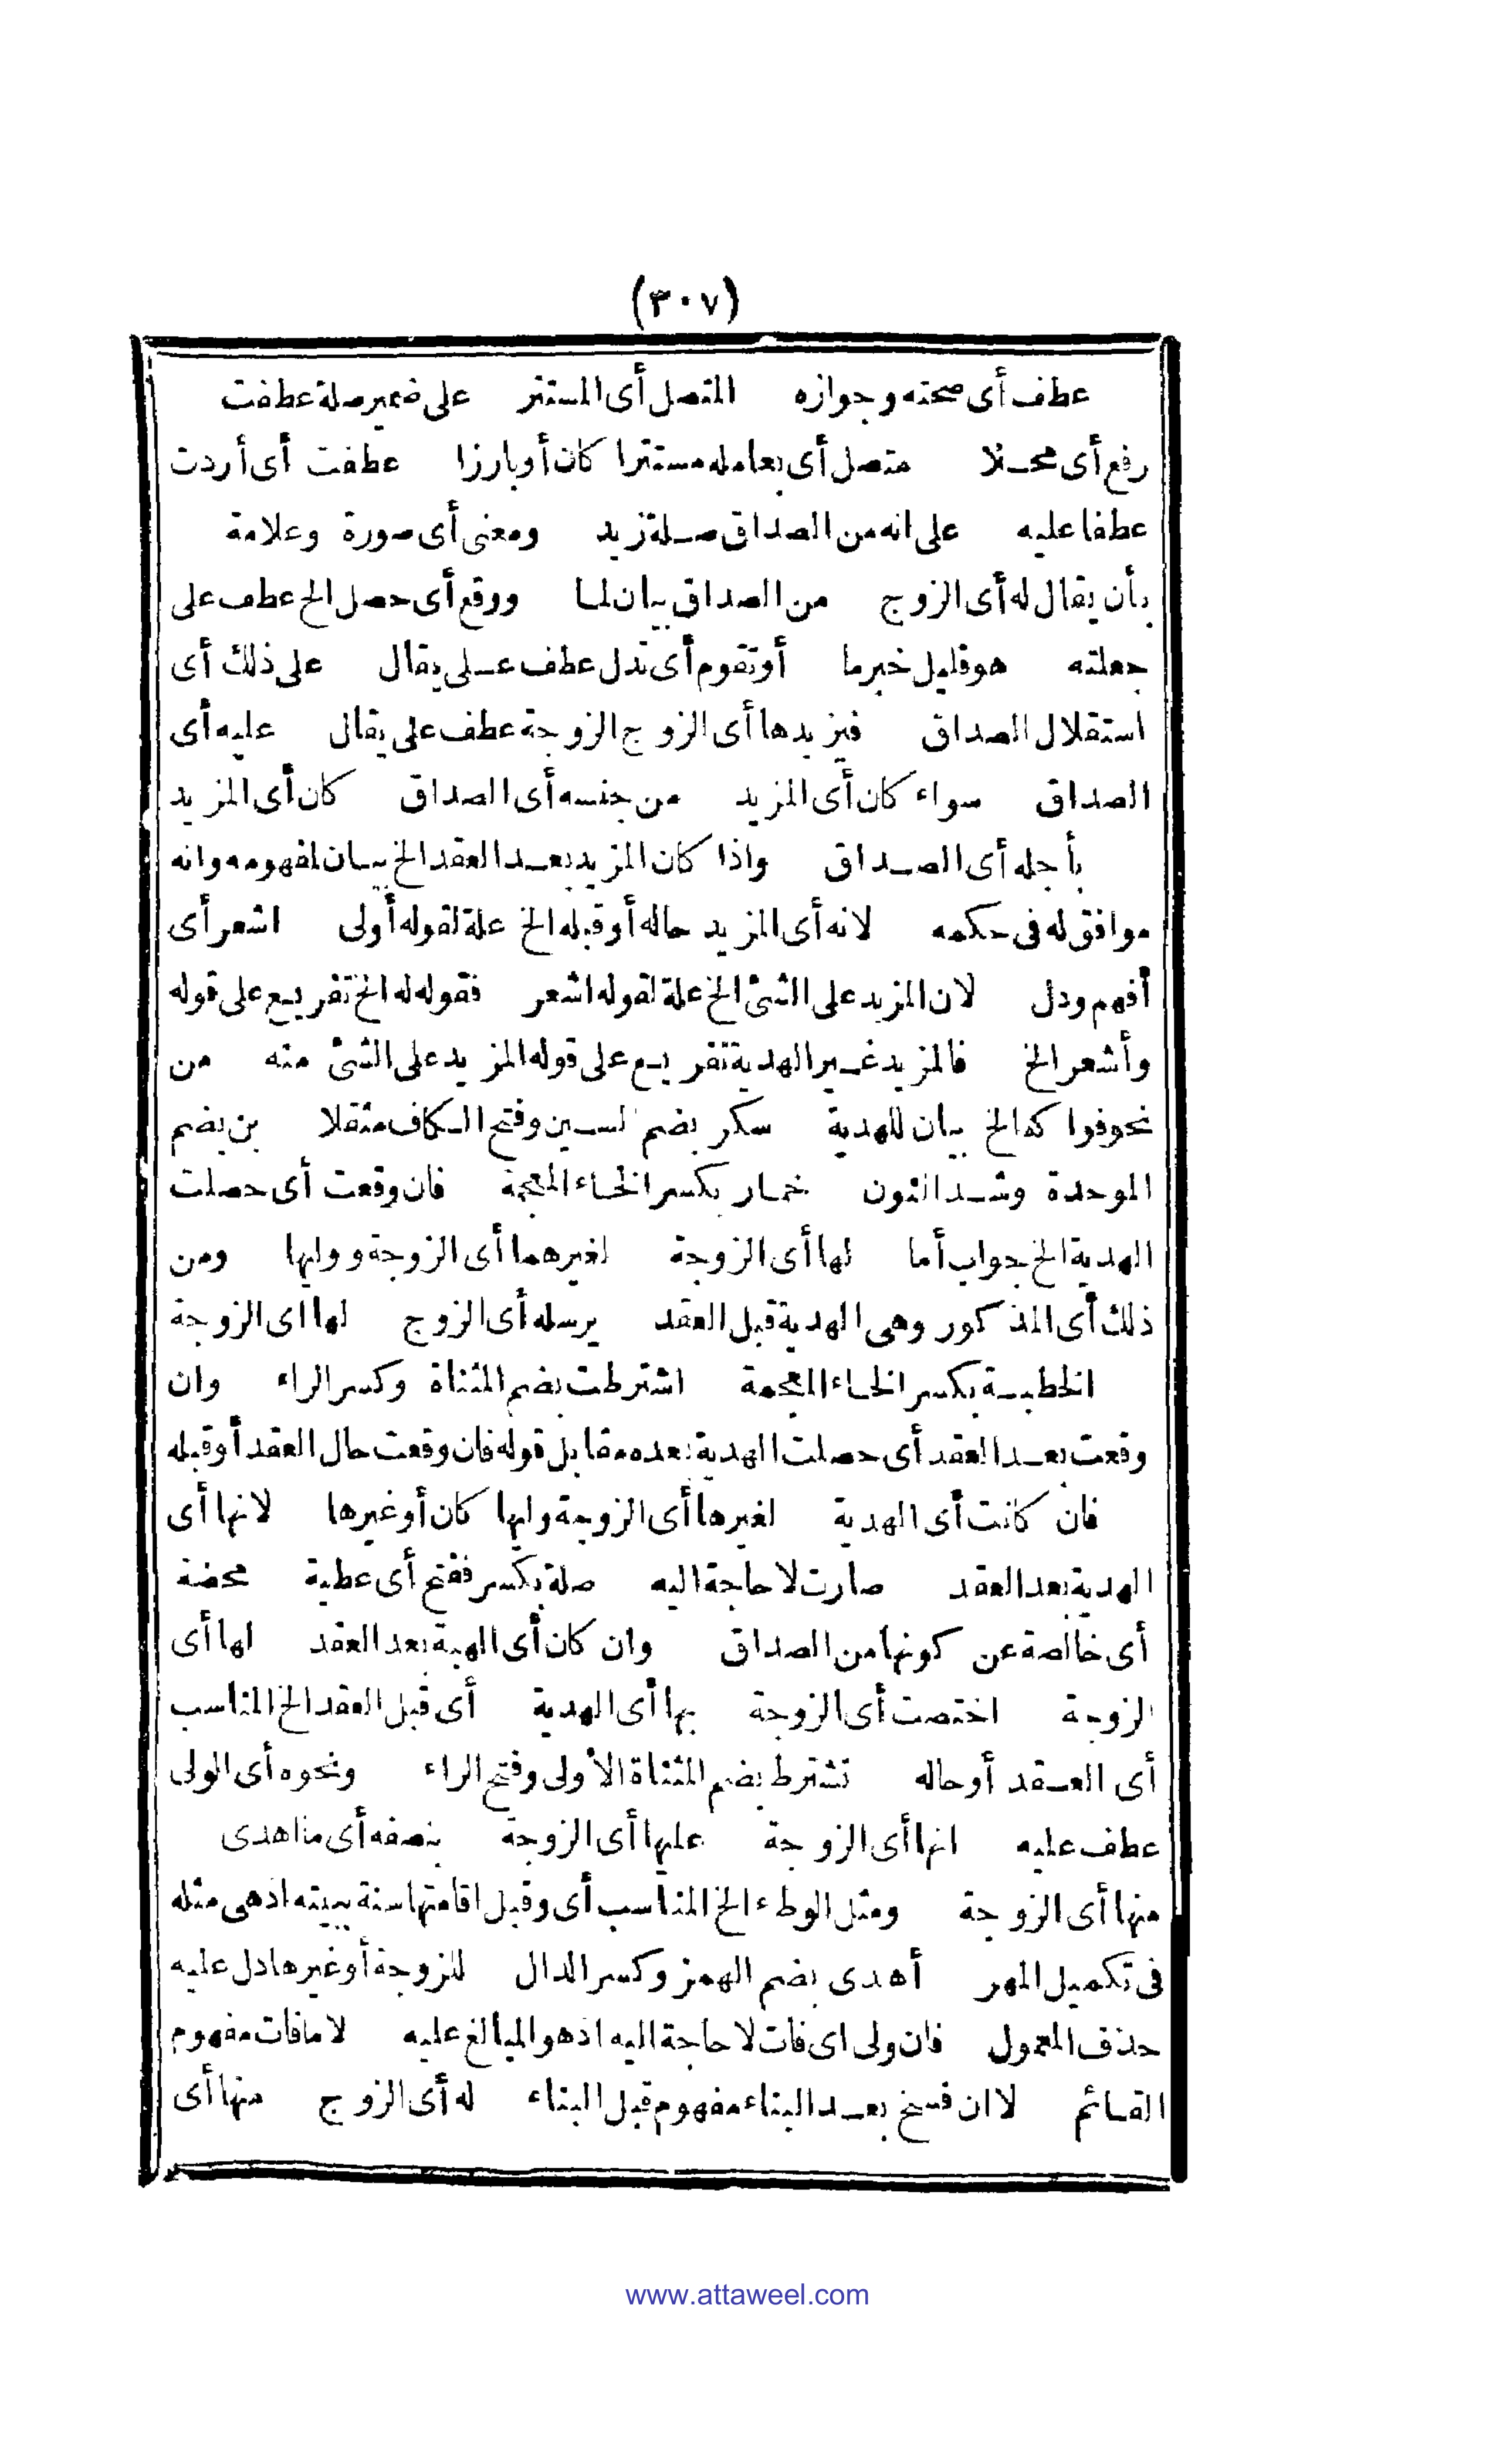 (٣٠٧)
عطف أى صحته وجوازه المتصل أى المستتر على ضمير صلة عطفت
رفع أى محلا متصل أى بعامله مستترا كان أو بارزا عطفت أى أردت
عطفا عليه على انه من الصداق صلة زيد ومعنى أى صورة وعلامة
بأن يقال له أى الزوج من الصداق بيان لما ووقع أى حصل الخ عطف على
جعلته هو قليل خبر ما أو تقوم أى تدل عطف على يقال على ذلك أى
استقلال الصداق فيزيدها أى الزوج الزوجة عطف على يقال عليه أى
الصداق سواء كان أى المزيد من جنسه أى الصداق كان أى المزيد
بأجله أى الصداق واذا كان المزيد بعد العقد الخ بيان لمفهومه وانه
موافق له فى حكمه لانه أى المزيد حاله أو قبله الخ علة لقوله أولى اشعر أى
أفهم ودل لان المزيد على الشئ الخ علة لقوله اشعر فقوله له الخ تفريع على قوله
وأشعر الخ فالمزيد غير الهدية تفريع على قوله المزيد على الشئ منه من
نحو فواكه الخ بيان للهدية سكر بضم السين وفتح الكاف مثقلا بن بضم
الموحدة وشد النون خمار بكسر الخاء المعجمة فان وقعت أى حصلت
الهدية الخ جواب أما لها أى الزوجة لغيرهما أى الزوجة ووليها ومن
ذلك أى المذكور وهى الهدية قبل العقد يرسله أى الزوج لها اى الزوجة
الخطبة بكسر الخاء المعجمة اشترطت بضم المثناة وكسر الراء وان
وقعت بعد العقد أى حصلت الهدية بعده مقابل قوله فان وقعت حال العقد أو قبله
فان كانت أى الهدية لغيرها أى الزوجة وليها كان أو غيرها لانها أى
الهدية بعد العقد صارت لا حاجة اليه صلة بكسر ففتح أى عطية محضة
أى خالصة عن كونها من الصداق وان كان أى الهبة بعد العقد لها أى
الزوجة اختصت أى الزوجة بها أى الهدية أى قبل العقد الخ المناسب
أى العقد أو حاله تشترط بضم المثناة الأولى وفتح الراء ونحوه أى الولى
عطف عليه انها أى الزوجة عليها أى الزوجة بنصفه أى ما اهدى
منها أى الزوجة ومثل الوطء الخ المناسب أى وقبل اقامتها سنة ببيته اذ هى مثله
فى تكميل المهر أهدى بضم الهمز وكسر الدال للزوجة أو غيرها دل عليه
حذف المعمول فان ولى اى فات لا حاجة اليه اذ هو المبالغ عليه لا ما فات مفهوم
القائم لا ان فسخ بعد البناء مفهوم قبل البناء له أى الزوج منها أى
www.attaweel.com